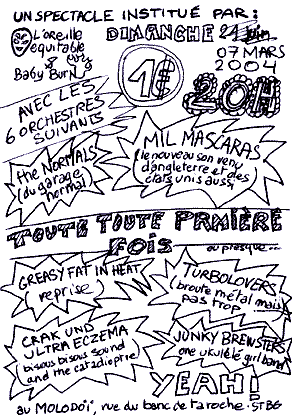 UN SPECTACLE INSTITUÉ PAR:
L'oreille
équitable
Baby Burn
DIMANCHE
07 MARS
2004
1€
20H
AVEC LES
6 ORCHESTRES
SUIVANTS
MIL MASCARAS
(le nouveau son venu
d'angleterre et des
états unis aussi)
the NORMALS
(du garage
normal)
TOUTE TOUTE PRMIÈRE
FOIS
ou presque...
GREASY FAT IN HEAT
(reprise)
TURBOLOVERS
(broute métal mais
pas trop)
CRAK UND
ULTRA ECZEMA
bisous bisous sound
and the catadioptric
JUNKY BREWSTER
one ukulélé girl band
YEAH!
au MOLODOÏ, rue du banc de la roche. STBG